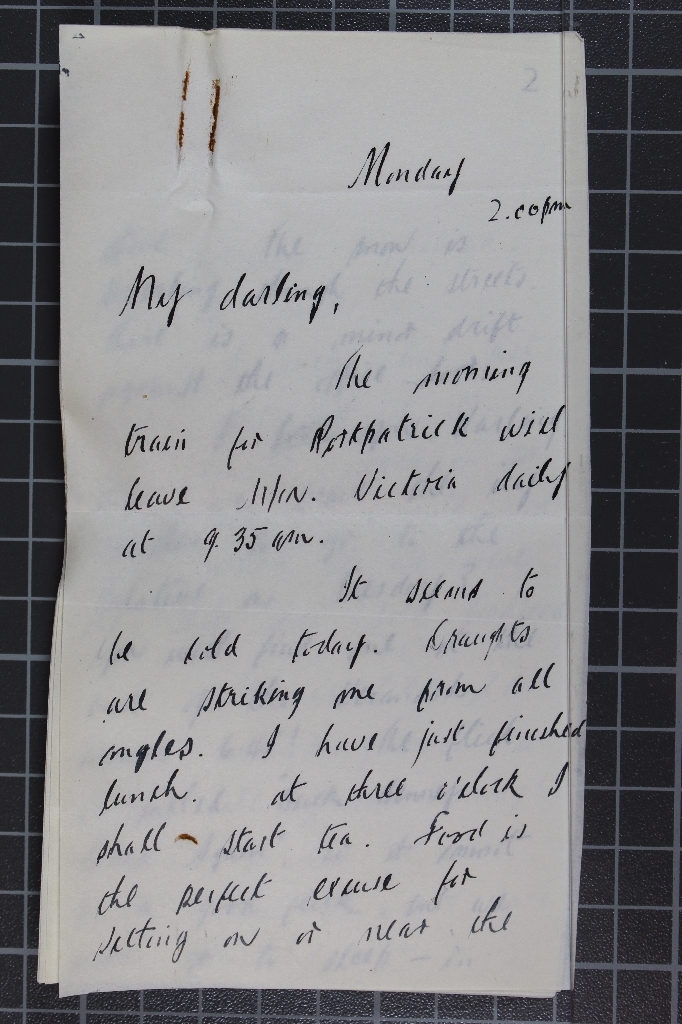 2
Monday
2.00pm
My darling,
The morning
train for Kirkpatrick will
leave M/cr. Victoria daily
at 9.35 am.
It seems to
be cold today. Draughts
are striking me from all
angles. I have just finished
lunch. At three o'clock I
shall start tea. Food is
the perfect excuse for
sitting on or near the